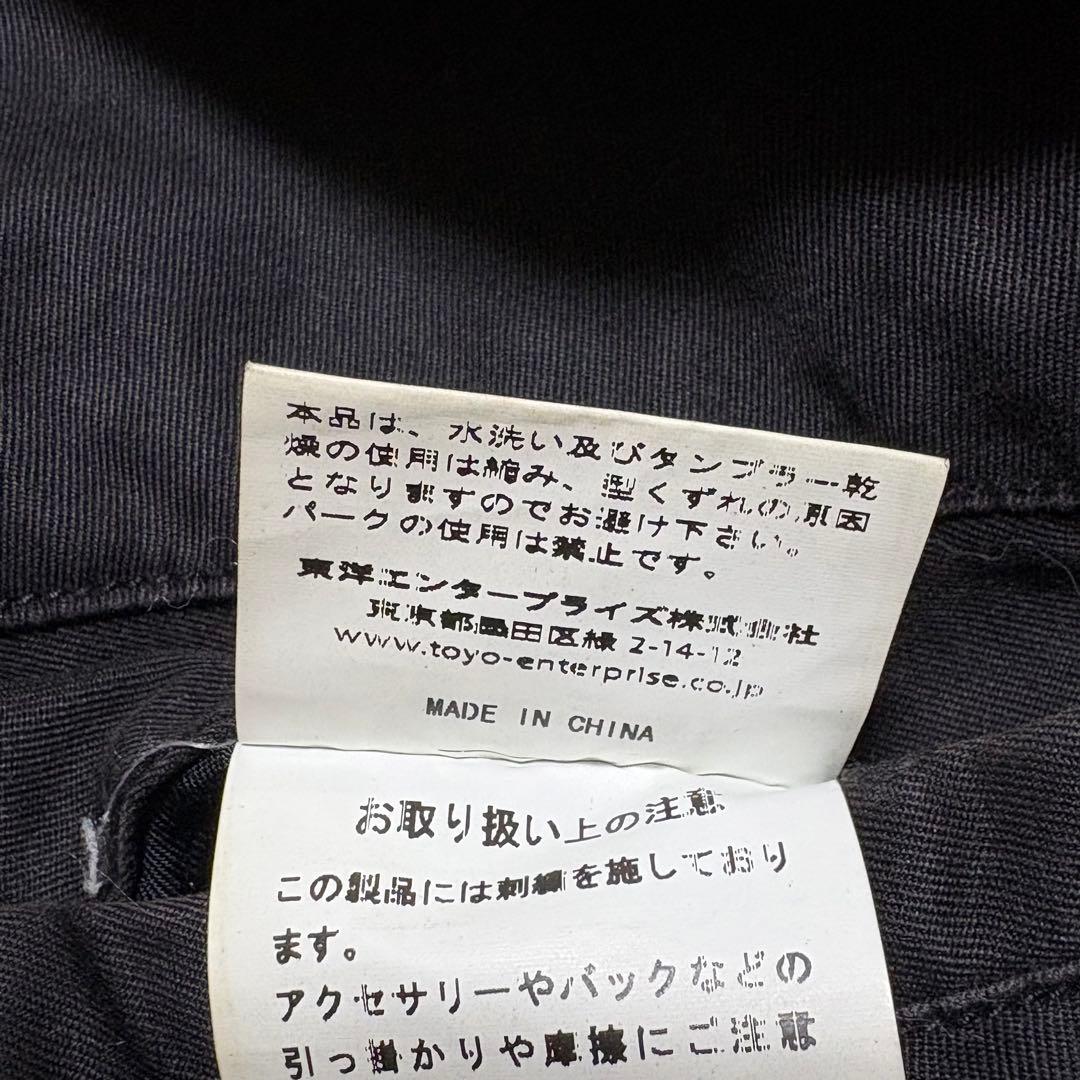 本品は、水洗い及びタンブラー乾
燥の使用は縮み、型くずれの原因
となりますのでお避け下さい。
パークの使用は禁止です。
東洋エンタープライズ株式会社
東京都墨田区緑 2-14-12
www.toyo-enterprise.co.jp
MADE IN CHINA
お取り扱い上の注意
この製品には刺繍を施しており
ます。
アクセサリーやバックなどの
引っ掛かりや摩擦にご注意